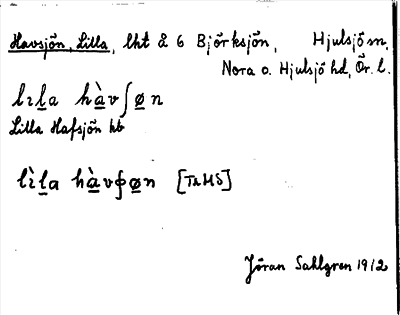 Havsjön, Lilla, lht å 6 Björksjön, Hjulsjö sn,
Nora o. Hjulsjö hd, Ör. l.
lıl̲a hàvʃø̲n
Lilla Hafsjön hb
lìl̲a hàvʃø̲n [TkMS]
Jöran Sahlgren 1912